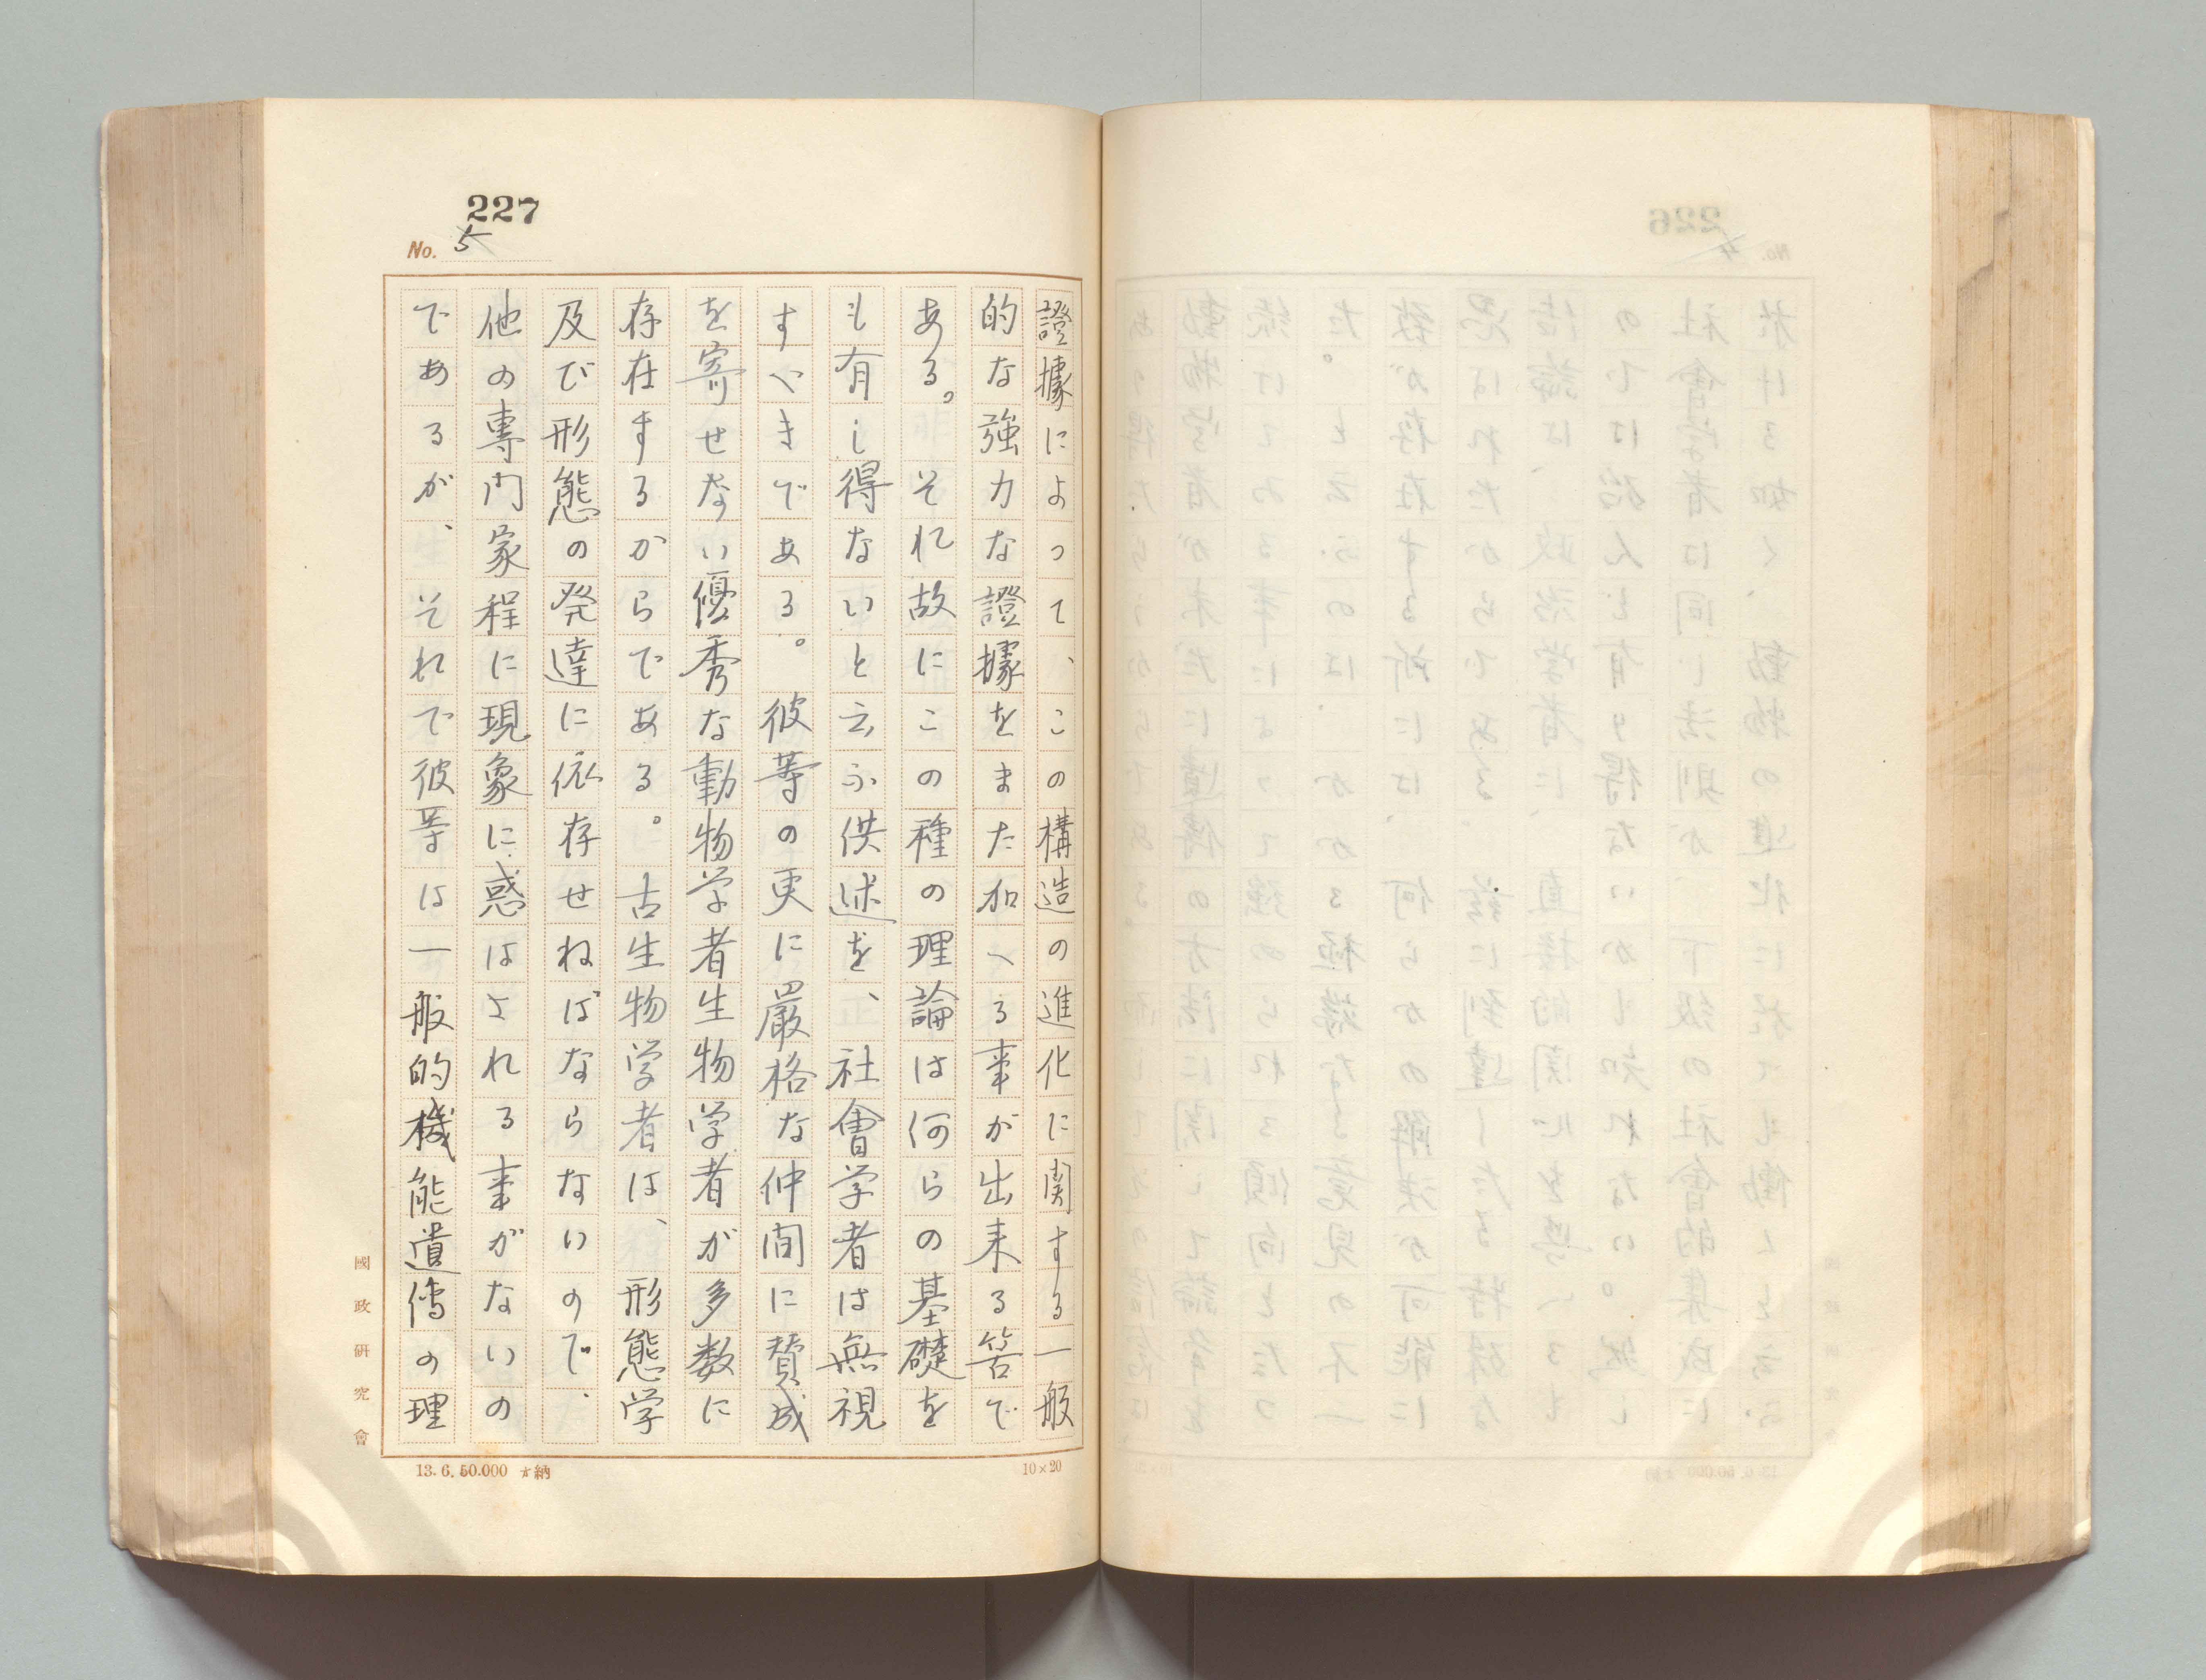 227
No. 5
證據によって、この構造の進化に関する一般
的な強力な證據をまた加へる事が出来る筈で
ある。それ故にこの種の理論は何らの基礎を
も有し得ないと云ふ供述を、社會学者は無視
すべきである。彼等の更に厳格な仲間に賛成
を寄せない優秀な動物学者生物学者が多数に
存在するからである。古生物学者は、形態学
及び形態の発達に依存せねばならないので、
他の專門家程に現象に惑はされる事がないの
であるが、それで彼等は一般的機能遺傳の理
國政研究會
13.6.50.000 納
10×20